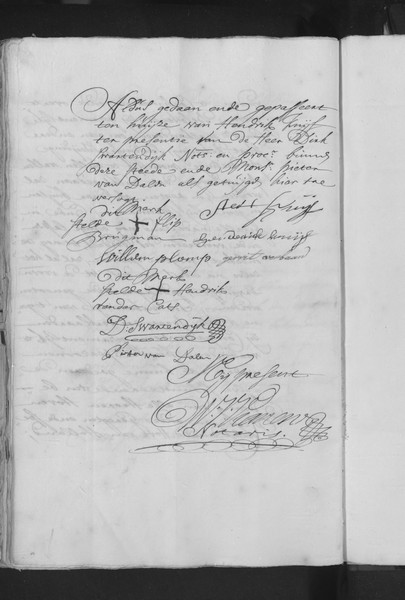 Aldus gedaan ende gepasseert
ten huijse van Hendrik Knijf
ter presentie van de Heer Dirk
Swartendijk Nots. en Procr. binnen
deze steede ende Monsr. Pieter
van Dalen als getuijgen hier toe
versogt
dit Merk
stelde + flip
Brugman
Hendrick knijf
Willem plomp
dit Merk
stelde + Hendrik
vander Cats
D: Swartendijk
Pieter van Dalen
Mij present
Notaris.